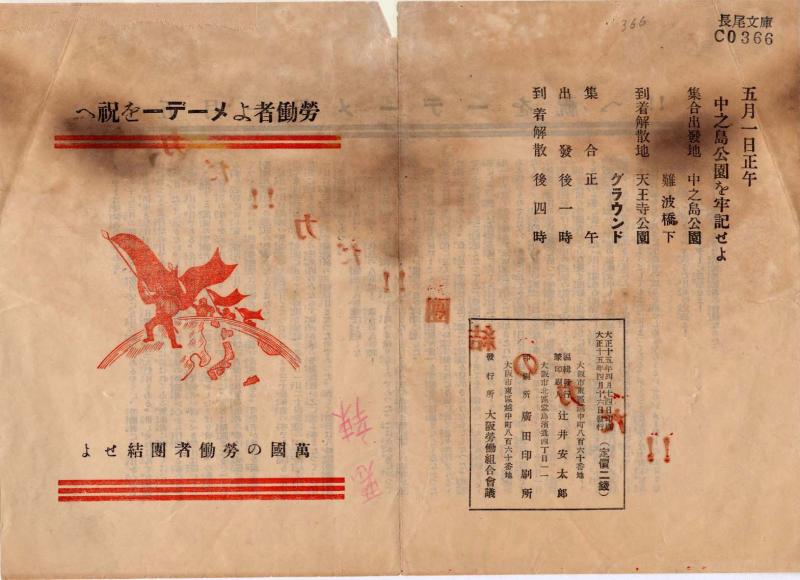 長尾文庫
C0366
366
五月一日正午
中之島公園を牢記せよ
集合出發地 中之島公園
難波橋下
到着解散地 天王寺公園
グラウンド
集合正午
出發後一時
到着解散後四時
大正十五年四月十四日印刷
大正十五年四月十六日發行
(定價二錢)
大阪市東區越中町八百六十番地
編輯發行
兼印刷人 辻井安太郎
大阪市北區堂島濱通四丁目二一
印刷所 廣田印刷所
大阪市東區越中町八百六十番地
發行所 大阪勞働組合會議
勞働者よメーデーを祝へ
萬國の勞働者團結せよ
團結の力だ!!
力だ!!
力だ!!